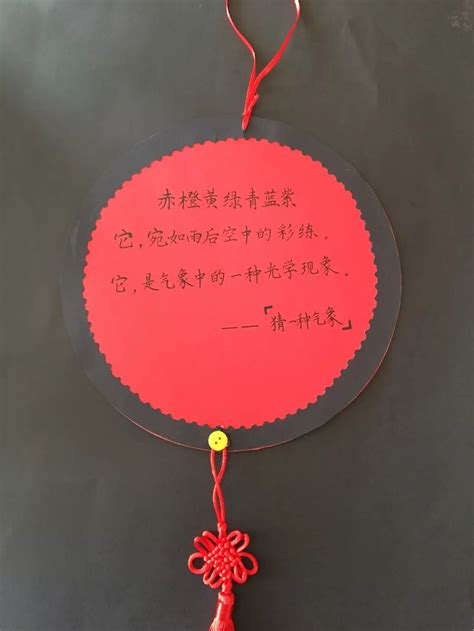 赤橙黄绿青蓝紫
它,宛如雨后空中的彩练。
它,是气象中的一种光学现象。
——「猜一种气象」